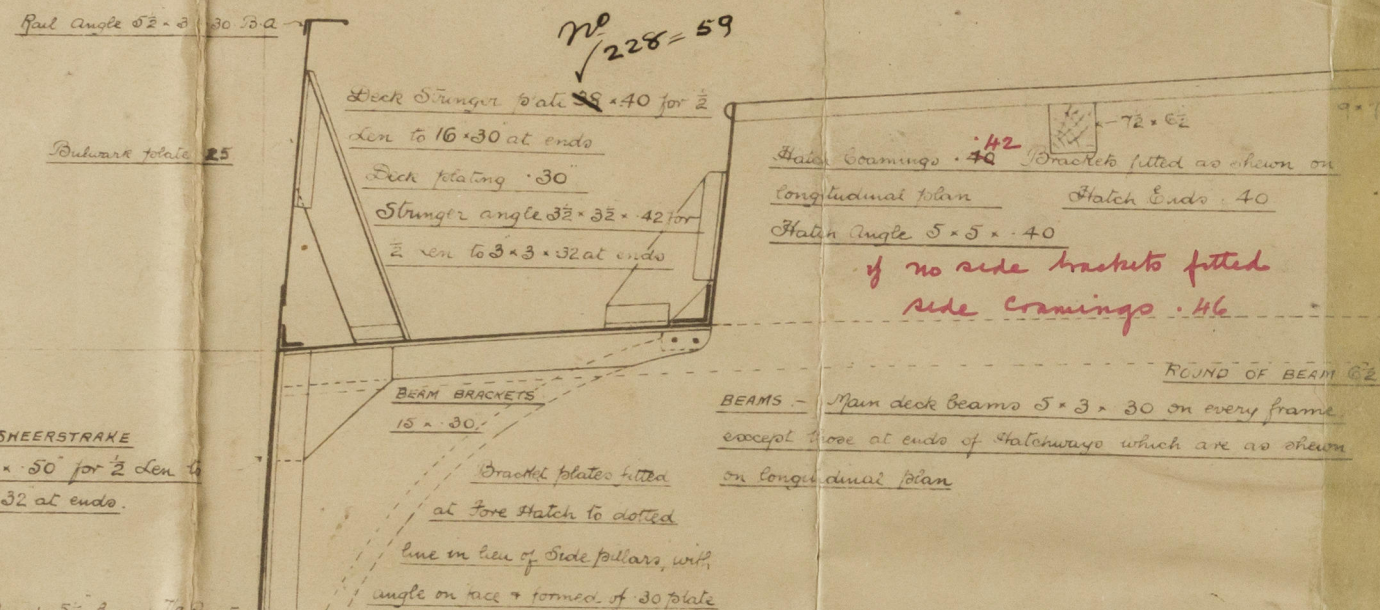 Rail Angle 5½ × 3 × ·30 B.A
No
228 = 59
Deck Stringer plate 38 × ·40 for ½
Len to 16 × ·30 at ends
Deck plating ·30
Stringer angle 3½ × 3½ × ·42 for
½ Len to 3 × 3 × ·32 at ends
Bulwark plate ·25
7½ × 6½
·42
Hatch Coamings ·40 Brackets fitted as shewn on
longitudinal plan Hatch Ends ·40
Hatch Angle 5 × 5 × ·40
if no side brackets fitted
side coamings ·46
ROUND OF BEAM 6½
BEAM BRACKETS
15 × ·30
BEAMS :- Main deck beams 5 × 3 × ·30 on every frame
except those at ends of Hatchways which are as shewn
on longitudinal plan
SHEERSTRAKE
× ·50 for ½ Len to
32 at ends.
Bracket plates fitted
at Fore Hatch to dotted
line in lieu of Side pillars, with
angle on face & formed of ·30 plate